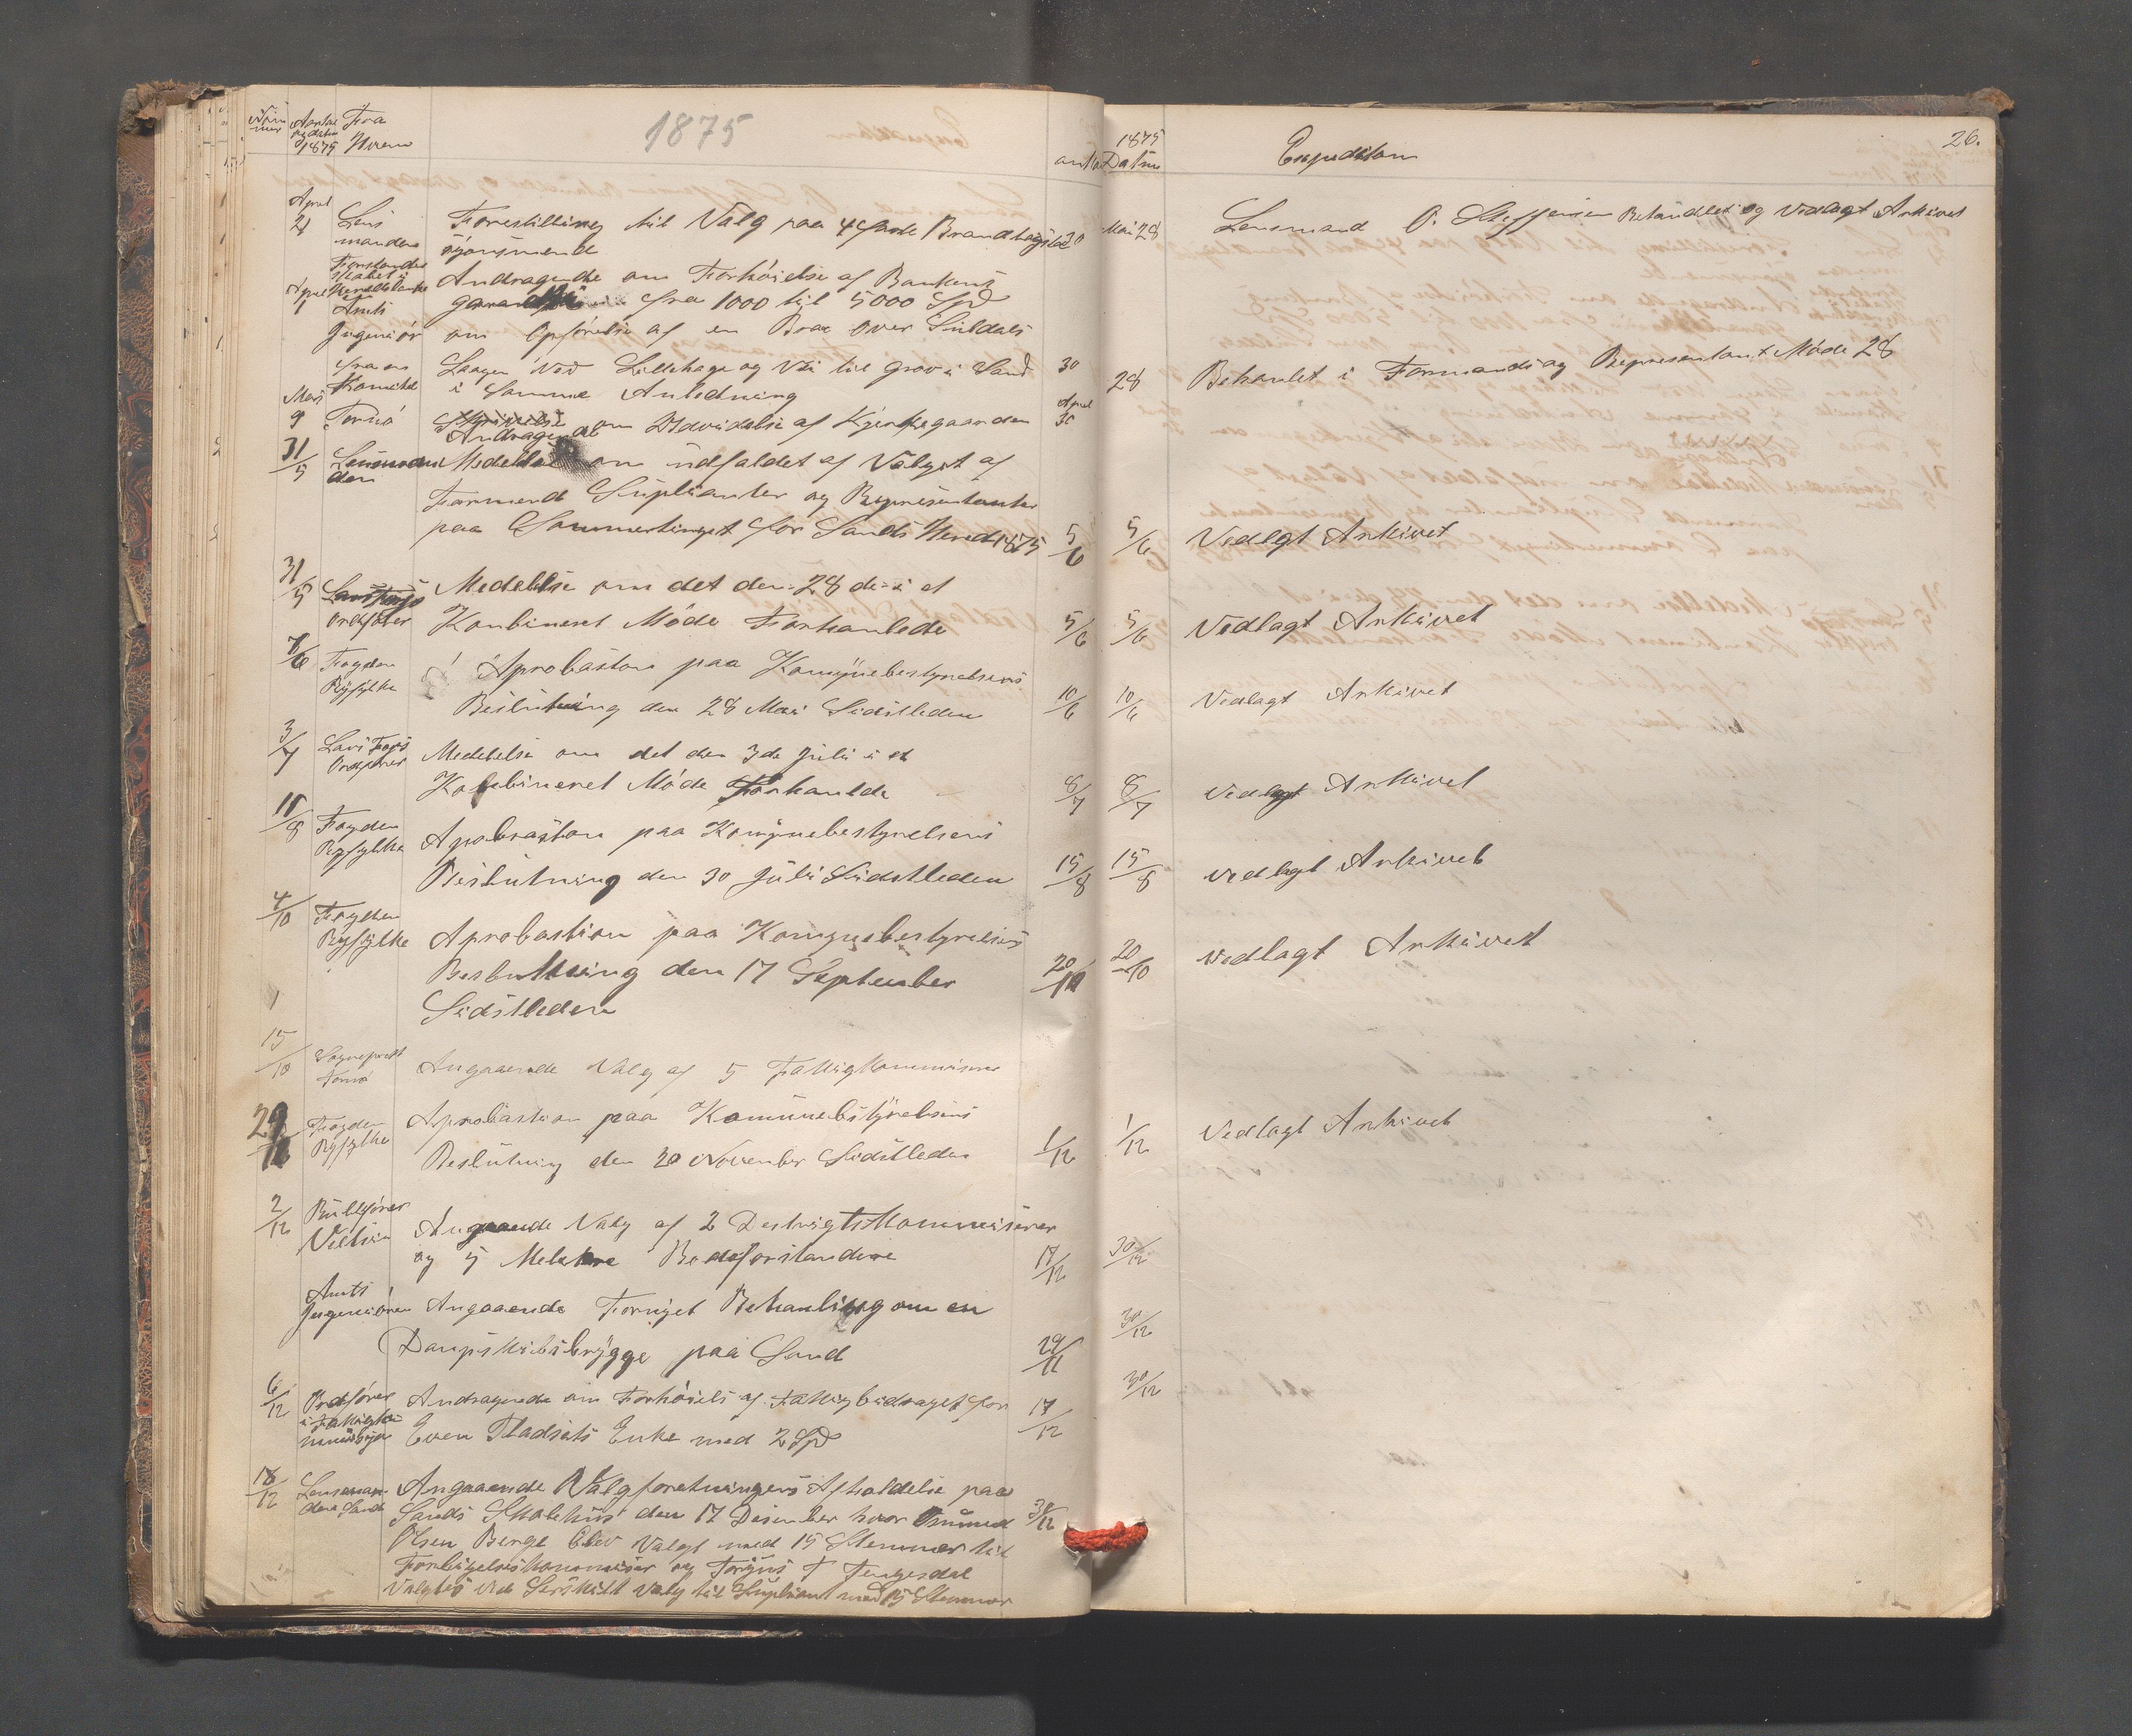 Num
mer
Aarstal
og datum
1875
Fra
Hvem
1875
April
21
Lens
manden
Forestilling til Valg paa 4 faste Brandtagsions
30
sjönsmend
Forstander
skabet i
April
Andragende om Forhöielse af Bankens
garanti fra 1000 til 5000 Spd
Amts
Ingeniör
om Opförelse af en Bro over Suldals
fra en
Komitee
Laagen ved Lillehage og Vei til Grov i Sand
30
i Samme Anledning
Mai
9
Tornö
Andragende om Udvidelse af Kjerkegaarden
April
30
31/5
Lensman
den
Medelelse om udfaldet af Valget af
Formend Suplianter og Representanter
paa Sommertinget for Sands Hered 1875
5/6
31/5
Ordförer
Medelelse om det den 28 de i et
Konbineret Möde Forhanlede
5/6
8/6
Fogden
Ryfylke
Aprobastion paa Komynebestyrelsens
Beslutning den 28 Mai Sidstleden
10/6
3/7
Ordförer
Medelelse om det den 3de Juli i et
Kobbineret Möde Forhanlede
8/7
11/8
Fogden
Ryfylke
Aprobastion paa Komynebestyrelsens
Beslutning den 30 Juli Sidstleden
15/8
4/10
Fogden
Ryfylke
Aprobastion paa Komynebestyrelsens
Beslutning den 17 September
20/10
Sidstleden
15/10
Sogneprest
Tornö
Angaaende Valg af 5 Fattigkommisner
29/11
Fogden
Ryfylke
Aprobastion paa Komunebstyrelsens
Beslutning den 20 November Sidstleden
1/12
2/12
Angaaende Valg af 2 Destrigtskommisærer
og 5 Bodsforstandere
17/12
Amts
Ingeniören
Angaaende Fornyet Behanling om en
Dampskibsbrygge paa Sand
29/11
6/12
Ordförer
i Fattigko
Andragende om Forhöiels af Fattigbidraget for
Even Fladsets Enke med 2 Spd
17/12
18/12
Lensman
den Sand
Angaaende Valgforetningens Afholdelse paa
Sands Skolehus den 17 Desember hvor
30/12
Olsen Berge blev Valgt med 15 Stemmer til
Forligelseskommisær og T Tengesdal
Valgtes ved Serskilt Valg til Suplianl med 15 Stemmer
1875
Datum
Expedition
26.
Mai 28
Lensmand O. Steffensen Behandlet og Vedlagt Arkivet
28
Behanlet i Formands og Representant Möde 28
5/6
Vedlgt Arkivet
5/6
Vedlagt Arkivet
10/6
Vedlagt Arkivet
8/7
Vedlagt Arkivet
15/8
Vedlagt Arkivet
20/10
Vedlagt Arkivet
1/12
Vedlagt Arkivet
30/12
30/12
30/12